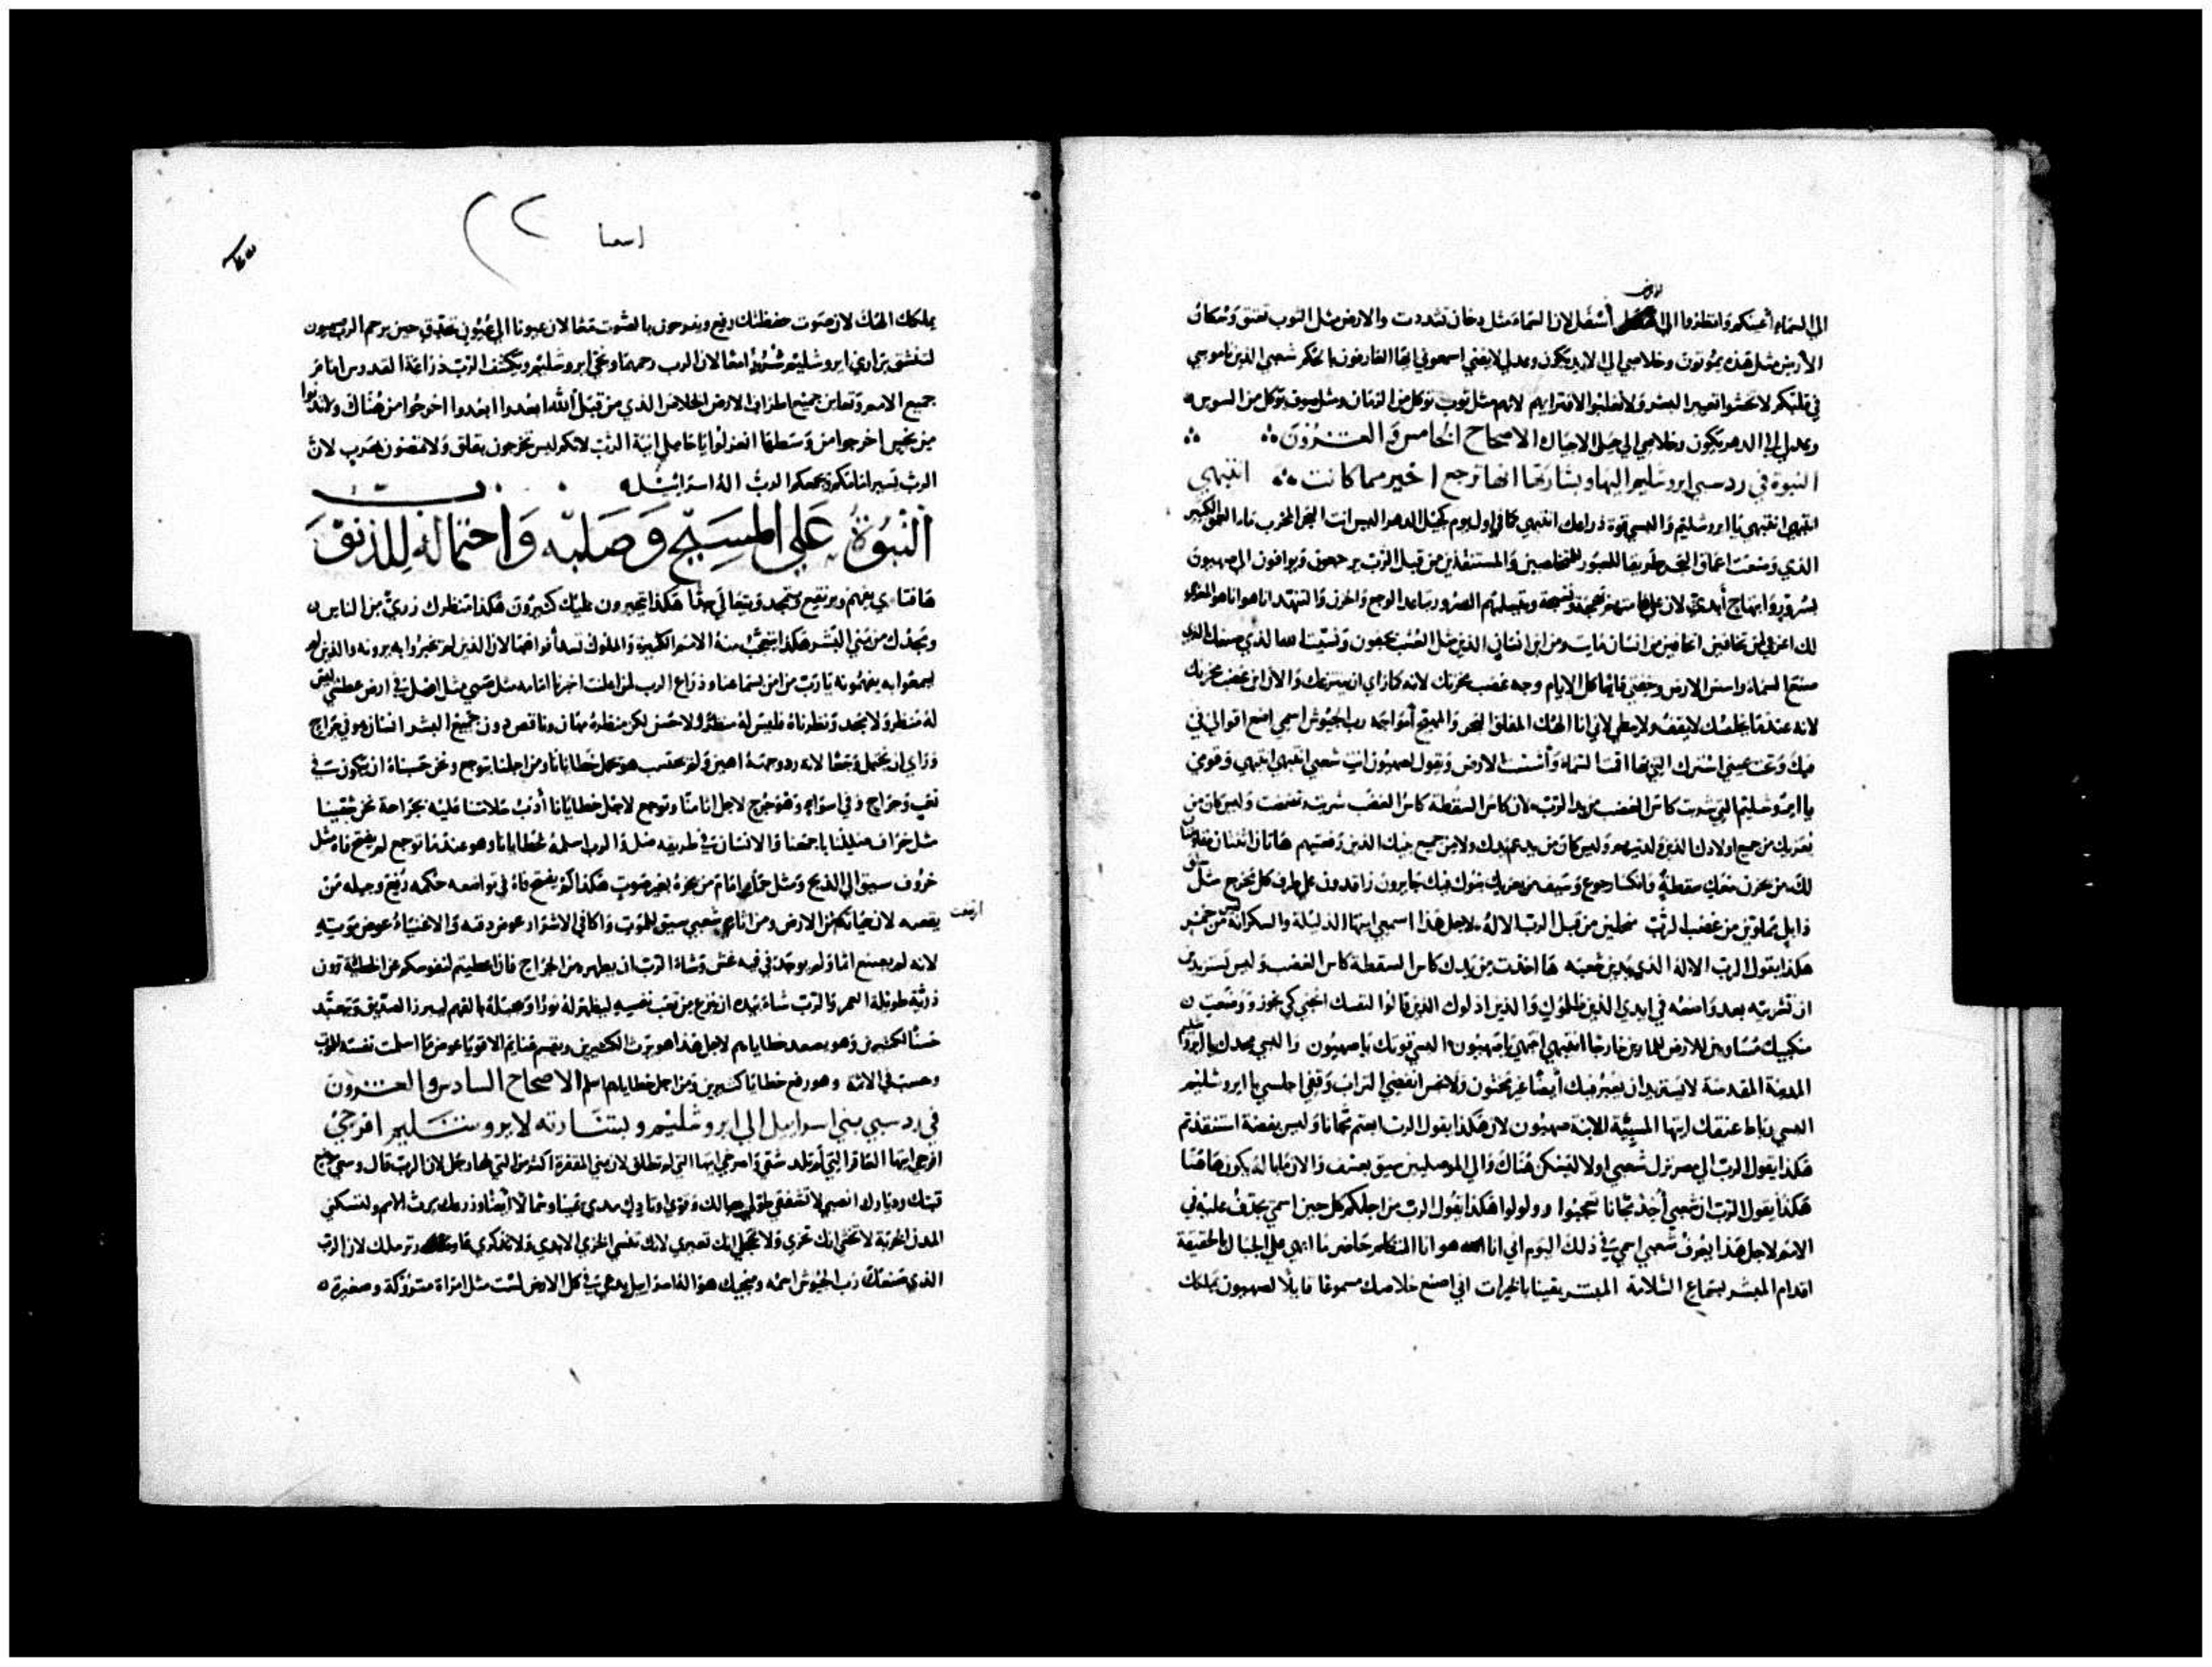 الارض
الي السماء أعينكم وانظروا الي أسفل لان السماء مثل دخان تشددت والارض مثل الثوب تعتق وسكان
الأرض مثل هذه يموتون وخلاصي الي الابد يكون وعدلي لا يفني اسمعوني ايها العارفون الحكم شعبي الذين ناموسي
في قلبكم لا تخشوا تعيير البشر ولا تغلبوا لافترايهم لانهم مثل ثوب توكل من الزمان ومثل صوف توكل من السوس
وعدلي الي الدهر يكون وخلاصي الي جيل الاجيال الاصحاح الخامس والعشرون
النبوة في رد سبي ايروشليم اليها وبشارتها انها ترجع اخير مما كانت انتبهي
انتبهي انتبهي يا ايروشليم والبسي قوة ذراعك انتبهي كما في اول يوم كجيل الدهر اليس انت البحر المخرب ماء العمق الكثير
الذي وضعت اعماق البحر طريقا للعبور للمخلصين والمستنقذين من قبل الرب يرجعون ويوافون الي صهيون
بسرور وابتهاج أبدي لان علي هامتهم بهجة وتقبلهم السرور تباعد الوجع والحزن والتنهد انا هو انا هو المعزي
لك اعرفي ممن تخافين اتخافين من انسان مايت ومن ابن انسان الذين مثل العشب يجفون ونسيت الله الذي صنعك الذي
صنع السماء واسس الارض وخفتي دايما كل الايام وجه غضب محزنك لانه كما راي ان ينتزعك والان اين غضب محزنك
لانه عندما خلصك لا يقف ولا يبطي لاني انا الهك المقلق البحر والمهيج أمواجه رب الجيوش اسمي اضع اقوالي في
فيك وتحت يدي استرك التي بها اقمت السماء وأسست الارض وتقول لصهيون انت شعبي انتبهي انتبهي وقومي
يا ايروشليم التي شربت كاس الغضب من يد الرب لان كاس السقطة كاس الغضب شربت وليس كان من
يعزيك من جميع اولادك الذين ولدتيهم وليس كان من يمسك يدك ولا من جميع بنيك الذين رفعتيهم هاتان اثنتان
لك من يحزن معك سقطة وانكسار جوع وسيف من يعزيك بنوك راقدون علي طرف كل مخرج مثل
من غضب الرب من قبل الرب الاله لاجل هذا اسمعي ايتها الذليلة والسكرانة ليس من خمر
هكذا يقول الرب الاله الذي يدين شعبه ها اخذت من يدك كاس السقطة كاس الغضب وليس تستزيدين
ان تشربيه بعد واضعه في ايدي الذين ظلموك والذين اذلوك الذين قالوا لنفسك انحني كي نجوز ووضعت
منكبيك مساويين للارض للمارين خارجا انتبهي انتبهي يا صهيون البسي قوتك يا صهيون والبسي مجدك يا ايروشليم
المدينة المقدسة لا يستزيد ان يعبر فيك أيضا غير مختون ولا نجس انفضي التراب وقفي اجلسي يا ايروشليم
رباط عنقك ايتها المسبية الابنة صهيون لان هكذا يقول الرب ابعتم مجانا وليس بفضة استنقذتم
هكذا يقول الرب الي مصر نزل شعبي اولا ليسكن هناك والي الموصليين سيق بعسف والان ما بالكم هاهنا
هكذا يقول الرب ان شعبي أخذ مجانا تعجبوا وولولوا هكذا يقول الرب من اجلكم كل حين اسمي يجدف عليه في
الامم لاجل هذا يعرف شعبي اسمي في ذلك اليوم اني انا هو انا المتكلم حاضر ما ابهي علي الجبال بالحقيقة
اقدام المبشر بسماع السلامة المبشر يقينا بالخيرات اني اصنع خلاصك مسموعا قايلا لصهيون يملك
اسعيا
يملك الهك لان صوت حفظتك رفيع ويفرحون بالصوت معا لان عيونا الي عيون تحدق حين يرحم الرب صهيون
لتنشق براري ايروشليم سرورا معا لان الرب رحمها ونجي ايروشليم ويكشف الرب ذراعه القدوس امام
جميع الامم وتعاين جميع اطراف الارض الخلاص الذي من قبل الله ابعدوا ابعدوا اخرجوا من هناك ولا تدنوا
من نجس اخرجوا من وسطها انعزلوا يا حاملي انية الرب لانكم ليس تخرجون بقلق ولا تمضون بهرب لان
الرب يسير امامكم ويجمعكم الرب اله اسرائيل
النبوة علي المسيح وصلبه واحتماله للذنوب
ها فتاي يفهم ويرتفع ويتمجد ويتعالي جدا هكذا يتحيرون عليك كثيرون هكذا منظرك زري من الناس
ومجدك من بني البشر هكذا يتعجب منه الامم الكثيرة والملوك تسد أفواهها لان الذين لم يخبروا به يرونه والذين لم
يسمعوا به يفهمونه يا رب من امن بسماعنا وذراع الرب لمن اعلنت اخبرنا امامه مثل صبي مثل اصل في ارض عطشي ليس
له منظر ولا مجد ونظرناه فليس له منظر ولا حسن لكن منظره مهان وناقص دون جميع البشر انسان هو في جراح
وراي ان يحتمل وجعا لانه رد وجهه اهين ولم يحتسب هو يحمل خطايانا ومن اجلنا يتوجع ونحن حسبناه ان يكون في
تعب وجراح وفي اسواء وهو جرح لاجل اثامنا وتوجع لاجل خطايانا أدب سلامتنا عليه بجراحه نحن شفينا
مثل خراف ضللنا باجمعنا والانسان في طريقه ضل والرب اسلمه لخطايانا وهو عندما توجع لم يفتح فاه مثل
خروف سيق الي الذبح ومثل حمل امام من يجزه بغير صوت هكذا لم يفتح فاه في تواضعه حكمه رفع وجيله من
يقصه لان حياته من الارض ومن اثام شعبي سيق للموت واكافي الاشرار عوض دفنه والاغنياء عوض موته
ارتفعت
لانه لم يصنع اثما ولم يوجد في فيه غش وشاء الرب ان يطهره من الجراح فان اعطيتم لنفوسكم عن الخطية ترون
ذرية طويلة العمر والرب شاء بيده ان ينزع من تعب نفسه ليظهر له نورا وجبله بالفهم ليبرر الصديق ويتعبد
حسنا لكثيرين وهو يصعد خطاياهم لاجل هذا هو يرث الكثيرين ويقسم غنايم الاقويا عوض ما اسلمت نفسه للموت
وحسب في الاثمة وهو رفع خطايا كثيرين ومن اجل خطاياهم اسلم الاصحاح السادس والعشرون
في رد سبي بني اسراييل الي ايروشليم وبشارته لايروشليم افرحي
افرحي ايتها العاقر التي لم تلد شقي واصرخي ايتها التي لم تطلق لان بني المقفرة اكثر من التي لها رجل لان الرب قال وسعي
قبتك وديارك انصبي لا تشفقي طولي حبالك وقوي اوتادك مدي يمينا وشمالا أيضا وزرعك يرث الامم ولتسكني
المدن الخربة لا تخشي انك تخزي ولا تخجلي انك تعيري لانك تنسي الخزي الابدي ولا تذكري عار ترملك لان الرب
الذي صنعك رب الجيوش اسمه ومنجيك هو اله اسراييل يدعي في كل الارض لست مثل امراة متروكة وصغيرة